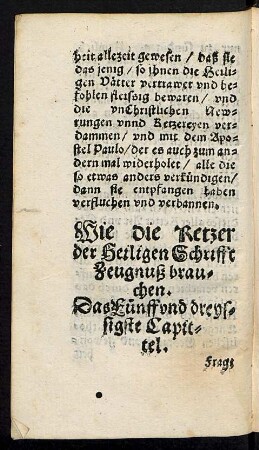 heit allezeit gewesen / daß sie
das jenig / so jhnen die Heili-
gen Vätter vertrawet vnd be-
fohlen fleissig bewaren / vnd
die vnChristlichen New-
rungen vnnd Ketzereyen ver-
dammen / vnd mit dem Apo-
stel Paulo / der es auch zum an-
dern mal widerholet / alle die
so etwas anders verkündigen /
dann sie entpfangen haben
verfluchen vnd verbannen.
Wie die Ketzer
der Heiligen Schrifft
Zeugnuß brau-
chen.
Das Fünff vnd dreys-
sigste Capit-
tel.
Fragt